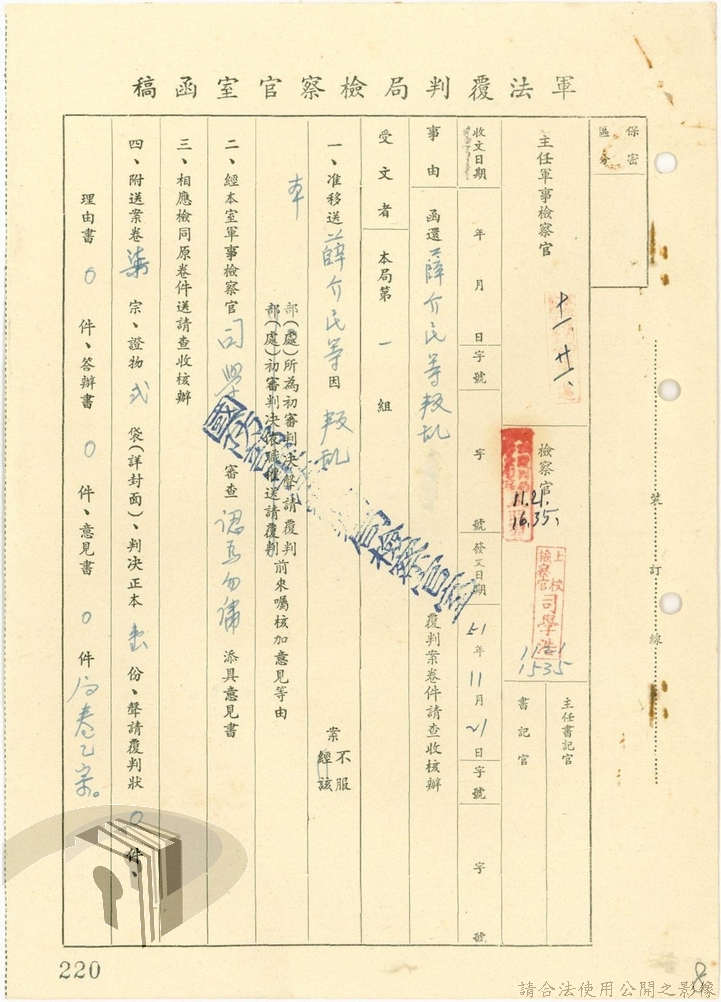 軍法覆判局檢察官室函稿
保密區分
主任軍事檢察官
十一、廿一、
檢察官
11.21.
16.35.
上校檢察官司學浩
11.21
1535
主任書記官
書記官
收文日期 年 月 日 字號 字 號
發文日期 51年11月21日 字號 字 號
事由 函還薛介民等叛亂 覆判案卷件請查收核辦
受文者 本局第一組
一、准移送薛介民等因叛亂 案 不服 經該
本
部(處)所為初審判決聲請覆判
部(處)初審判決依職權送請覆判
前來囑核加意見等由
二、經本室軍事檢察官 司學 審查 認為勿庸 添具意見書
三、相應檢同原卷件送請查收核辦
四、附送案卷柒宗、證物弍袋(詳封面)、判決正本壹份、聲請覆判狀0件、
理由書0件、答辯書0件、意見書0件
裝訂線
220
8
請合法使用公開之影像